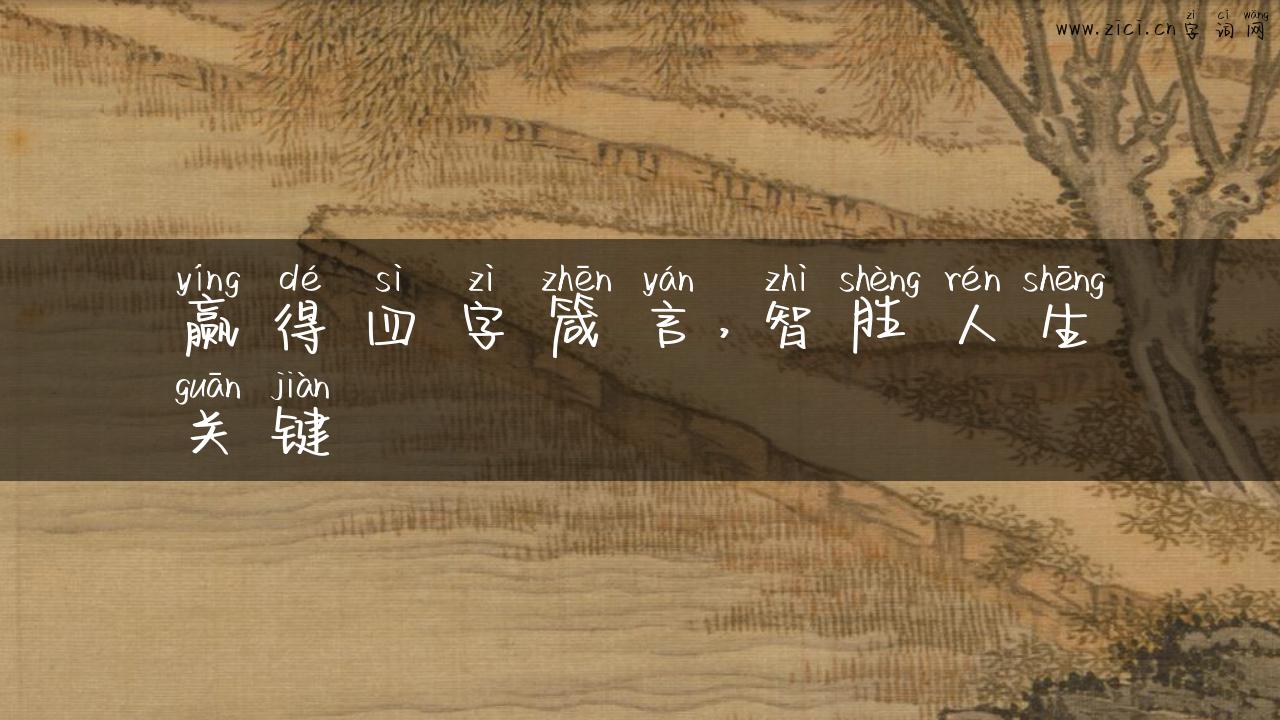 zì cí wǎng
www.zici.cn字词网
yíng dé sì zì zhēn yán zhì shèng rén shēng
赢得四字箴言,智胜人生
guān jiàn
关键